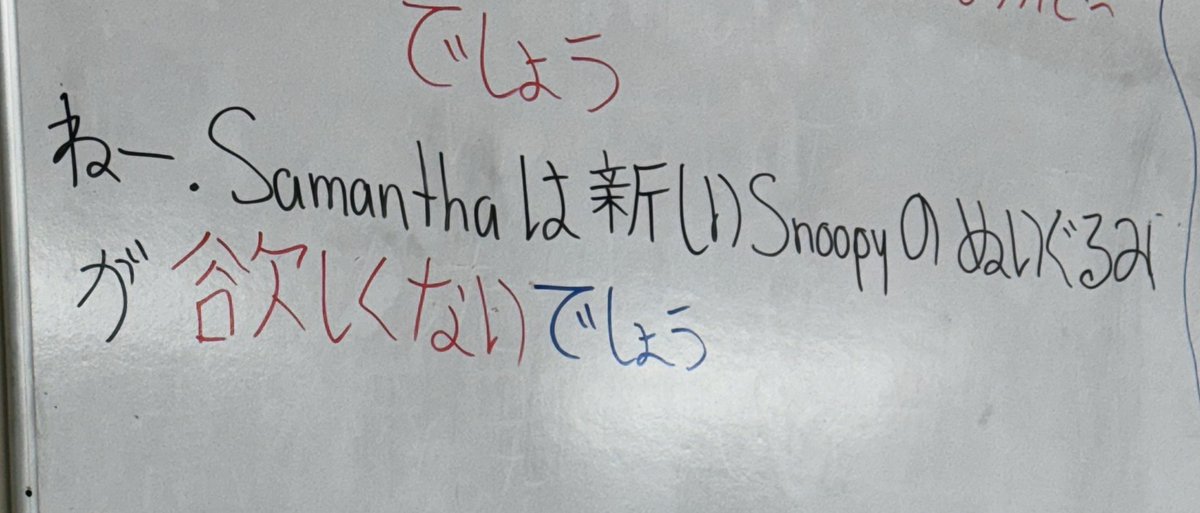 でしょう
ねー. Samanthaは新しいSnoopyのぬいぐるみ
が欲しくないでしょう